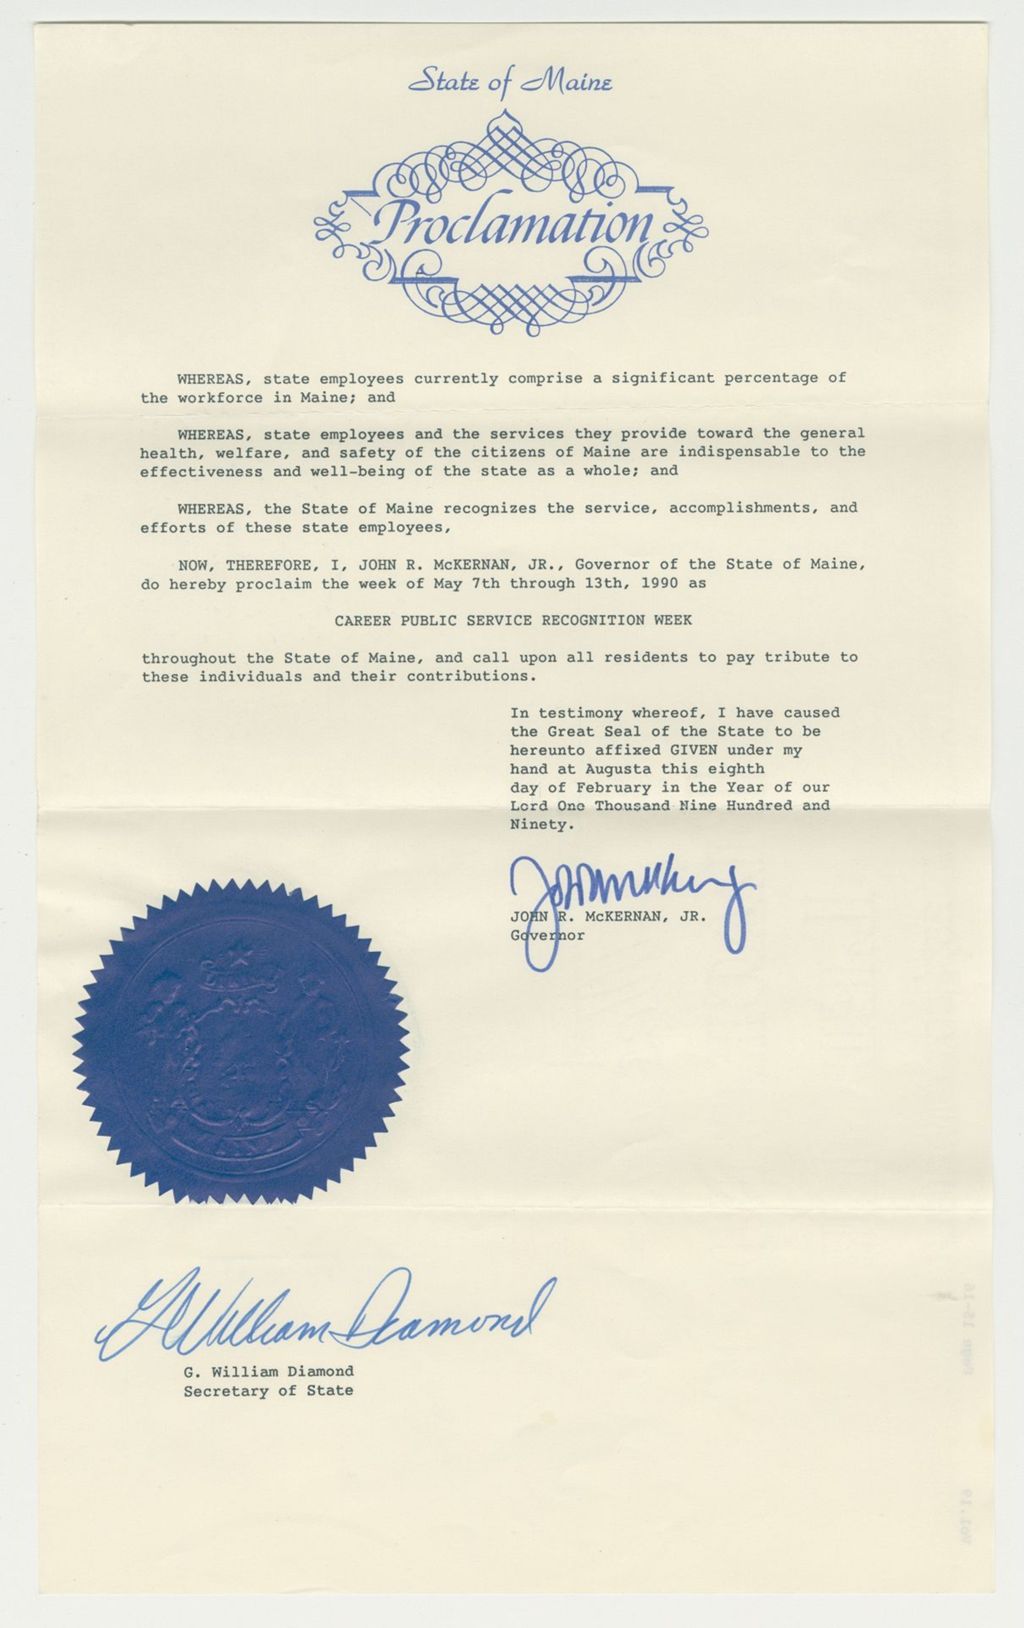 State of Maine
Proclamation
WHEREAS, state employees currently comprise a significant percentage of
the workforce in Maine; and
WHEREAS, state employees and the services they provide toward the general
health, welfare, and safety of the citizens of Maine are indispensable to the
effectiveness and well-being of the state as a whole; and
WHEREAS, the State of Maine recognizes the service, accomplishments, and
efforts of these state employees,
NOW, THEREFORE, I, JOHN R. McKERNAN, JR., Governor of the State of Maine,
do hereby proclaim the week of May 7th through 13th, 1990 as
CAREER PUBLIC SERVICE RECOGNITION WEEK
throughout the State of Maine, and call upon all residents to pay tribute to
these individuals and their contributions.
In testimony whereof, I have caused
the Great Seal of the State to be
hereunto affixed GIVEN under my
hand at Augusta this eighth
day of February in the Year of our
Lord One Thousand Nine Hundred and
Ninety.
JOHN R. McKERNAN, JR.
Governor
DIRIGO
MAINE
G William Diamond
G. William Diamond
Secretary of State
Page 15-16
Vol. 19